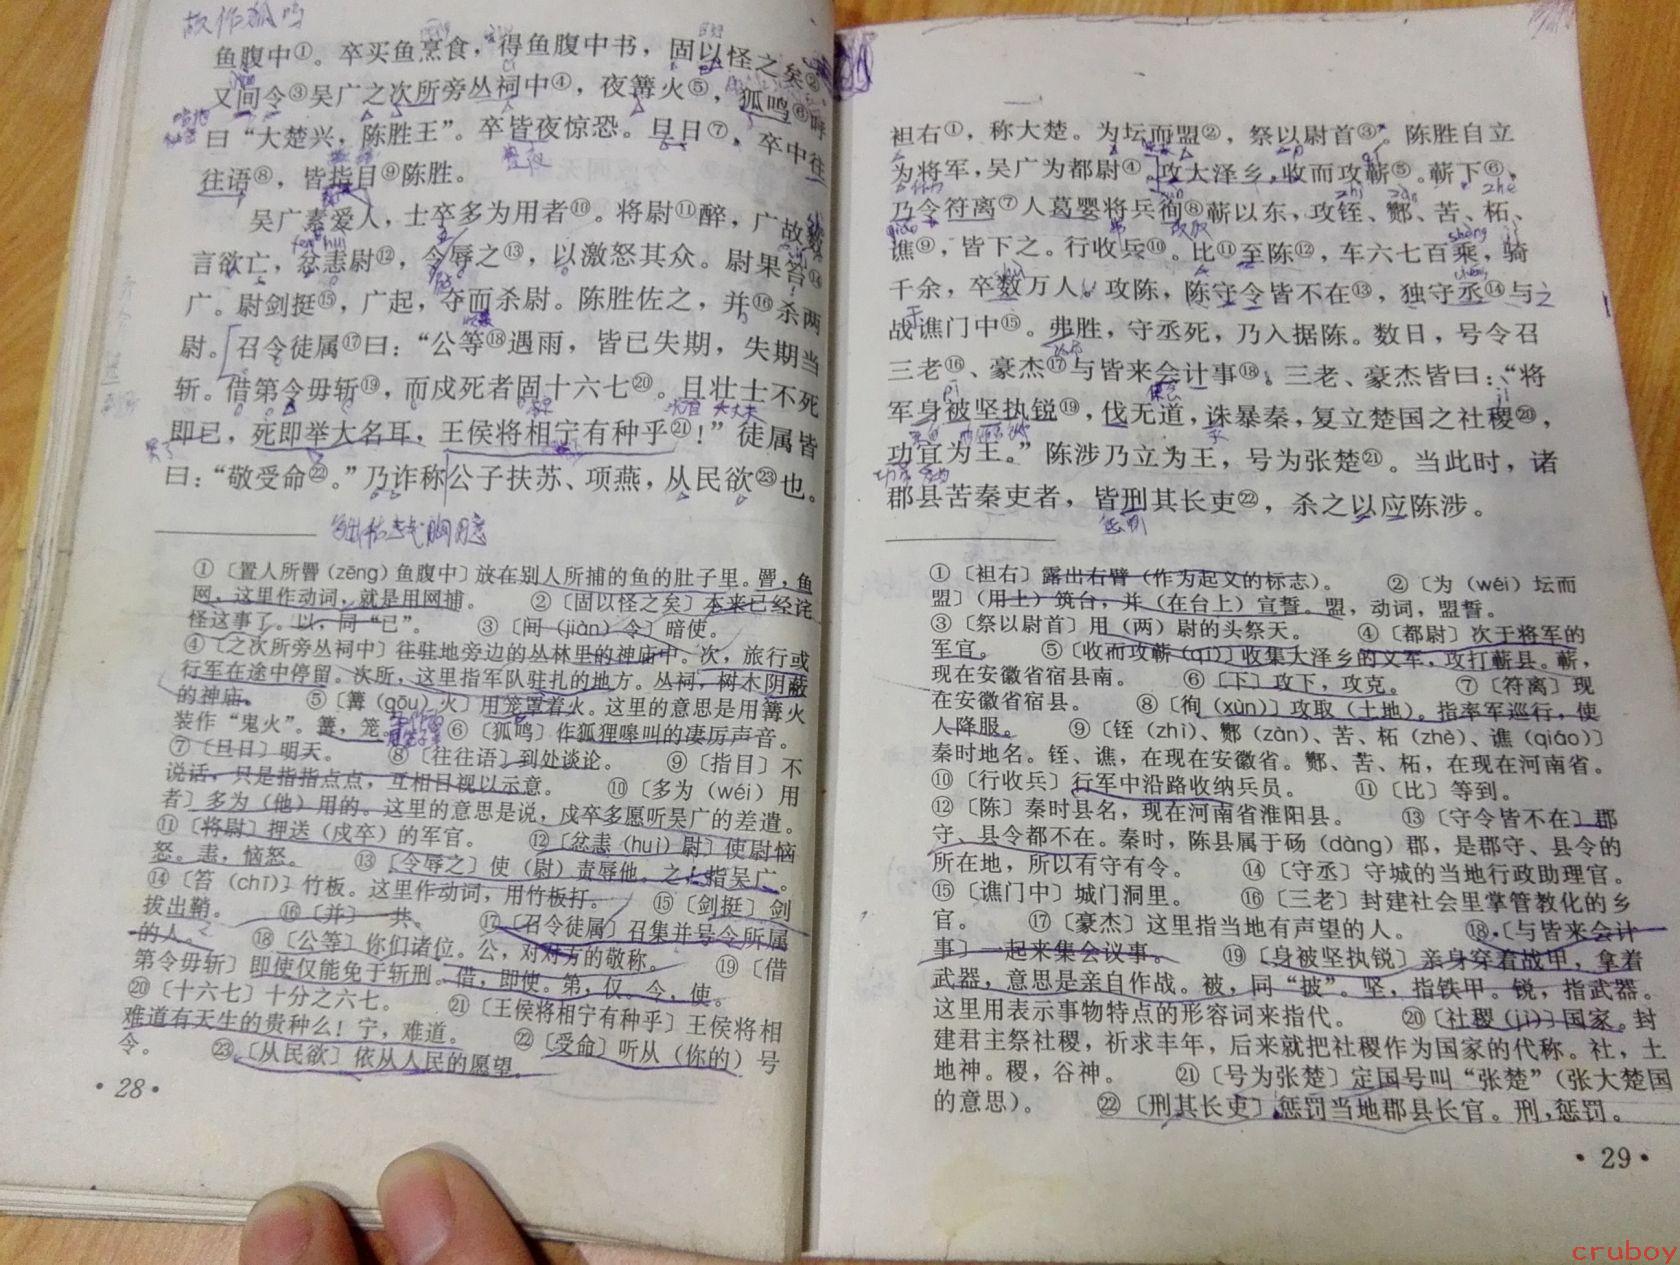 故作狐鸣
鱼腹中①。卒买鱼烹食，得鱼腹中书，固以怪之矣②
又间令③吴广之次所旁丛祠中④，夜篝火⑤，狐鸣⑥呼
曰“大楚兴，陈胜王”。卒皆夜惊恐。旦日⑦，卒中往
往语⑧，皆指目⑨陈胜。
吴广素爱人，士卒多为用者⑩。将尉⑪醉，广故数
言欲亡，忿恚尉⑫，令辱之⑬，以激怒其众。尉果笞⑭
广。尉剑挺⑮，广起，夺而杀尉。陈胜佐之，并⑯杀两
尉。召令徒属⑰曰：“公等⑱遇雨，皆已失期，失期当
斩。借第令毋斩⑲，而戍死者固十六七⑳。且壮士不死
即已，死即举大名耳，王侯将相宁有种乎㉑！”徒属皆
曰：“敬受命㉒。”乃诈称公子扶苏、项燕，从民欲㉓也。
①〔置人所罾（zēng）鱼腹中〕放在别人所捕的鱼的肚子里。罾，鱼
网，这里作动词，就是用网捕。 ②〔固以怪之矣〕本来已经诧
怪这事了。以，同“已”。 ③〔间（jiàn）令〕暗使。
④〔之次所旁丛祠中〕往驻地旁边的丛林里的神庙中。次，旅行或
行军在途中停留。次所，这里指军队驻扎的地方。丛祠，树木阴蔽
的神庙。 ⑤〔篝（gōu）火〕用笼罩着火。这里的意思是用篝火
装作“鬼火”。篝，笼。 ⑥〔狐鸣〕作狐狸嗥叫的凄厉声音。
⑦〔旦日〕明天。 ⑧〔往往语〕到处谈论。 ⑨〔指目〕不
说话，只是指指点点，互相目视以示意。 ⑩〔多为（wéi）用
者〕多为（他）用的。这里的意思是说，戍卒多愿听吴广的差遣。
⑪〔将尉〕押送（戍卒）的军官。 ⑫〔忿恚（huì）尉〕使尉恼
怒。恚，恼怒。 ⑬〔令辱之〕使（尉）责辱他。之，指吴广。
⑭〔笞（chī）〕竹板。这里作动词，用竹板打。 ⑮〔剑挺〕剑
拔出鞘。 ⑯〔并〕一共。 ⑰〔召令徒属〕召集并号令所属
的人。 ⑱〔公等〕你们诸位。公，对对方的敬称。 ⑲〔借
第令毋斩〕即使仅能免于斩刑。借，即使。第，仅。令，使。
⑳〔十六七〕十分之六七。 ㉑〔王侯将相宁有种乎〕王侯将相
难道有天生的贵种么！宁，难道。 ㉒〔受命〕听从（你的）号
令。 ㉓〔从民欲〕依从人民的愿望。
·28·
袒右①，称大楚。为坛而盟②，祭以尉首③。陈胜自立
为将军，吴广为都尉④。攻大泽乡，收而攻蕲⑤。蕲下⑥，
乃令符离⑦人葛婴将兵徇⑧蕲以东，攻铚、酂、苦、柘、
谯⑨，皆下之。行收兵⑩。比⑪至陈⑫，车六七百乘，骑
千余，卒数万人。攻陈，陈守令皆不在⑬，独守丞⑭与
战谯门中⑮。弗胜，守丞死，乃入据陈。数日，号令召
三老⑯、豪杰⑰与皆来会计事⑱。三老、豪杰皆曰：“将
军身被坚执锐⑲，伐无道，诛暴秦，复立楚国之社稷⑳，
功宜为王。”陈涉乃立为王，号为张楚㉑。当此时，诸
郡县苦秦吏者，皆刑其长吏㉒，杀之以应陈涉。
①〔袒右〕露出右臂（作为起义的标志）。 ②〔为（wéi）坛而
盟〕（用土）筑台，并（在台上）宣誓。盟，动词，盟誓。
③〔祭以尉首〕用（两）尉的头祭天。 ④〔都尉〕次于将军的
军官。 ⑤〔收而攻蕲（qí）〕收集大泽乡的义军，攻打蕲县。蕲，
现在安徽省宿县南。 ⑥〔下〕攻下，攻克。 ⑦〔符离〕现
在安徽省宿县。 ⑧〔徇（xùn）〕攻取（土地）。指率军巡行，使
人降服。 ⑨〔铚（zhì）、酂（zàn）、苦、柘（zhè）、谯（qiáo）〕
秦时地名。铚、谯，在现在安徽省。酂、苦、柘，在现在河南省。
⑩〔行收兵〕行军中沿路收纳兵员。 ⑪〔比〕等到。
⑫〔陈〕秦时县名，现在河南省淮阳县。 ⑬〔守令皆不在〕郡
守、县令都不在。秦时，陈县属于砀（dàng）郡，是郡守、县令的
所在地，所以有守有令。 ⑭〔守丞〕守城的当地行政助理官。
⑮〔谯门中〕城门洞里。 ⑯〔三老〕封建社会里掌管教化的乡
官。 ⑰〔豪杰〕这里指当地有声望的人。 ⑱〔与皆来会计
事〕一起来集会议事。 ⑲〔身被坚执锐〕亲身穿着战甲，拿着
武器，意思是亲自作战。被，同“披”。坚，指铁甲。锐，指武器。
这里用表示事物特点的形容词来指代。 ⑳〔社稷（jì）〕国家。封
建君主祭社稷，祈求丰年，后来就把社稷作为国家的代称。社，土
地神。稷，谷神。 ㉑〔号为张楚〕定国号叫“张楚”（张大楚国
的意思）。 ㉒〔刑其长吏〕惩罚当地郡县长官。刑，惩罚。
·29·
cruboy